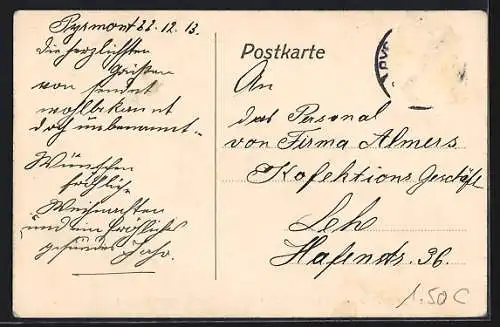 Pyrmont 22.12.13.
die herzlichsten
Grüßen
von sendet
wohlbekannt
doch unbenannt.
Wünschen
fröhlich
Weihnachten
und ein fröhliches
gesundes Jahr.
Postkarte
An
das Personal
von Firma Almers
Kofektions Geschäft
Leh
Hafenstr. 36.
1.50 C